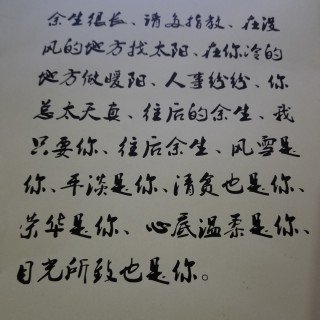 余生很长、请多指教、在没
风的地方找太阳、在你冷的
地方做暖阳、人事纷纷、你
总太天真、往后的余生、我
只要你、往后余生、风雪是
你、平淡是你、清贫也是你、
荣华是你、心底温柔是你、
目光所致也是你。